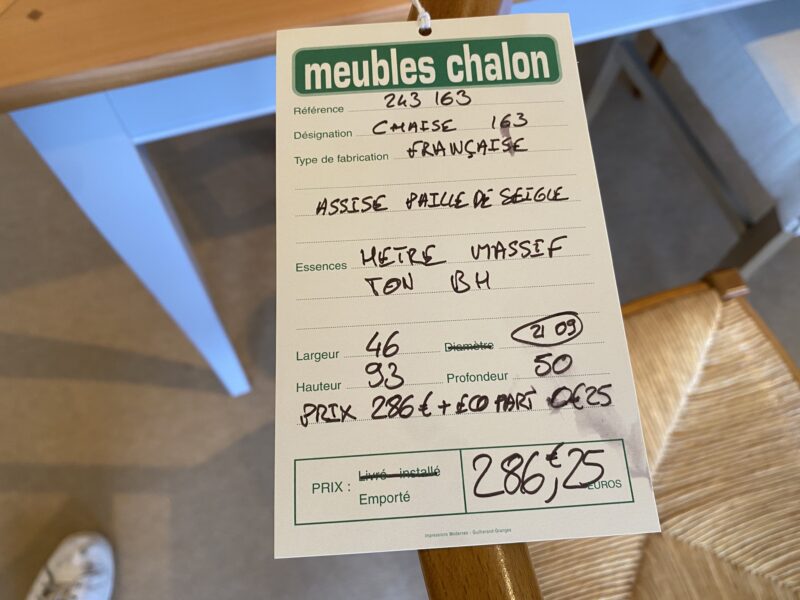 meubles chalon
Référence 243 163
Désignation CHAISE 163
Type de fabrication FRANÇAISE
ASSISE PAILLE DE SEIGLE
Essences HETRE MASSIF
TON BH
21 09
Largeur 46 Diamètre
Hauteur 93 Profondeur 50
PRIX 286 € + ECO PART 0€25
PRIX : Livré installé
Emporté
286,€25 EUROS
Impressions Modernes - Guilherand-Granges